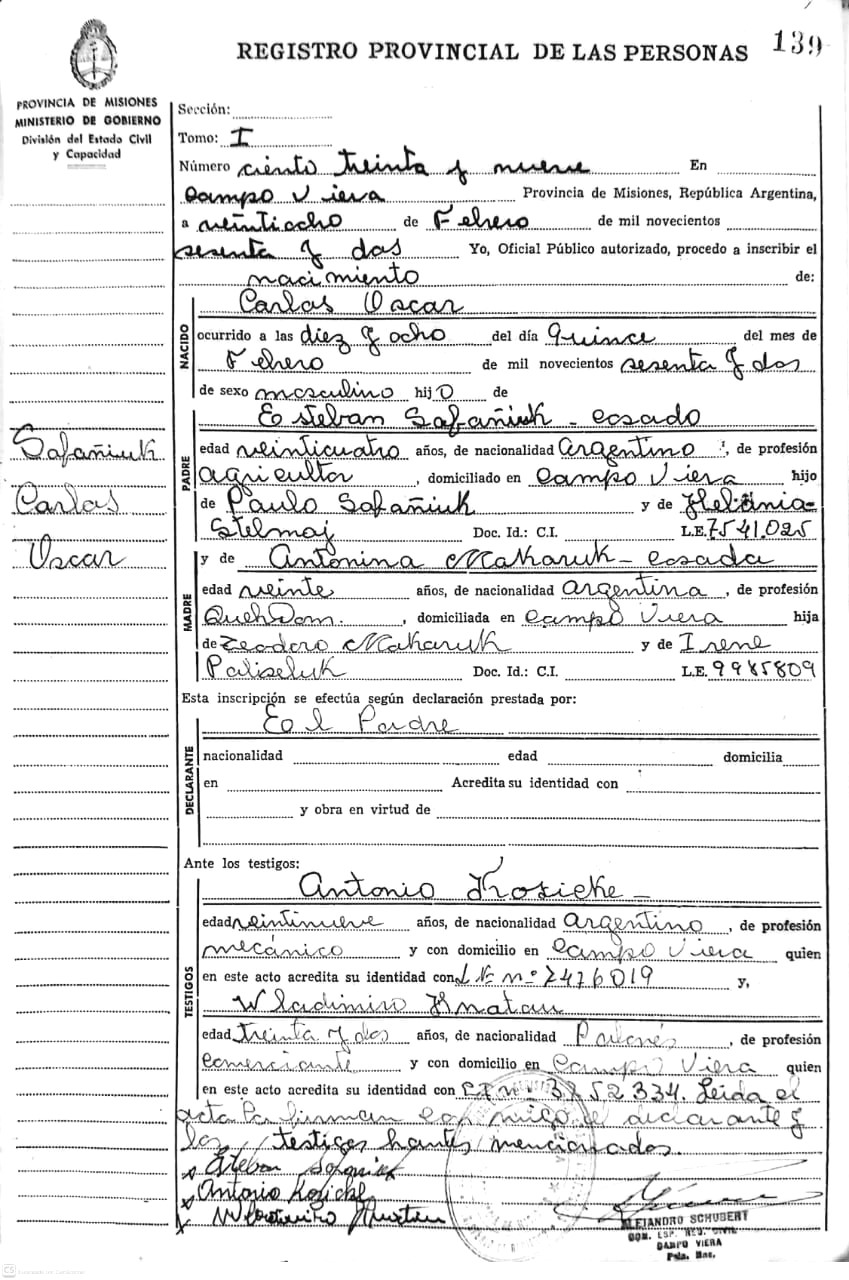 REGISTRO PROVINCIAL DE LAS PERSONAS 139
PROVINCIA DE MISIONES
MINISTERIO DE GOBIERNO
División del Estado Civil
y Capacidad
Sección:
Tomo: I
Número ciento treinta y nueve En
Campo Viera Provincia de Misiones, República Argentina,
a veintiocho de Febrero de mil novecientos
sesenta y dos Yo, Oficial Público autorizado, procedo a inscribir el
nacimiento de:
Carlos Oscar
NACIDO
ocurrido a las diez y ocho del día Quince del mes de
Febrero de mil novecientos sesenta y dos
de sexo masculino hijo de
Esteban Safañiuk - casado
PADRE
edad veinticuatro años, de nacionalidad Argentino, de profesión
agricultor, domiciliado en Campo Viera hijo
de Paulo Safañiuk y de Helania
Stelmaj Doc. Id.: C.I. L.E. 7541.025
y de Antonina Maharuk - casada
MADRE
edad veinte años, de nacionalidad argentina, de profesión
QuehDom., domiciliada en Campo Viera hija
de Teodoro Maharuk y de Irene
Paliseluk Doc. Id.: C.I. L.E. 9985809
Safañiuk
Carlos
Oscar
Esta inscripción se efectúa según declaración prestada por:
El Padre
DECLARANTE
nacionalidad edad domicilia
en Acredita su identidad con
y obra en virtud de
Ante los testigos:
Antonio Kosicke -
TESTIGOS
edad veintinueve años, de nacionalidad argentino, de profesión
mecánico y con domicilio en Campo Viera quien
en este acto acredita su identidad con nº 7476019 y,
Wladimiro Hnatau
edad treinta y dos años, de nacionalidad Polonés, de profesión
comerciante y con domicilio en Campo Viera quien
en este acto acredita su identidad con 3752334. Leida el
acta la firman con migo, el declarante y
los testigos hantes mencionados.
x Esteban Safañiuk
x Antonio Kosicke
x
ALEJANDRO SCHUBERT
CAMPO VIERA